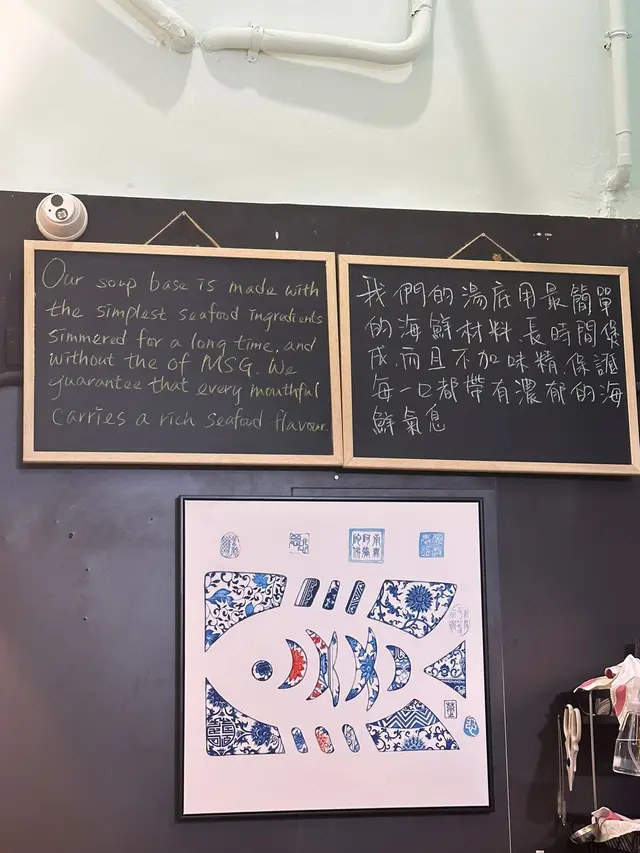 Our soup base is made with
the simplest seafood ingredients
simmered for a long time, and
without the of MSG. We
guarantee that every mouthful
carries a rich seafood flavour.
我們的湯底用最簡單
的海鮮材料.長時間煲
成.而且不加味精.保證
每一口都帶有濃郁的海
鮮氣息